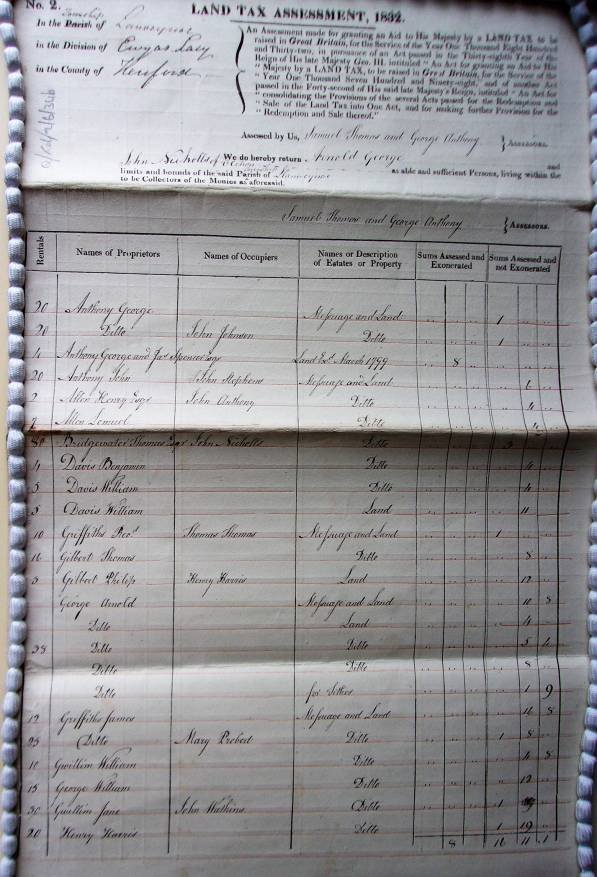 No. 2.
LAND TAX ASSESSMENT, 1832.
Township
In the Parish of
in the Division of Ewyas Lacy
in the County of Hereford
An Assessment made for granting an Aid to His Majesty by a LAND TAX to be
raised in Great Britain, for the Service of the Year One Thousand Eight Hundred
and Thirty-two, in pursuance of an Act passed in the Thirty-eighth Year of the
Reign of His late Majesty Geo. III. intituled "An Act for granting an Aid to His
"Majesty by a LAND TAX, to be raised in Great Britain, for the Service of the
"Year One Thousand Seven Hundred and Ninety-eight, and of another Act
passed in the Forty-second of His said late Majesty's Reign, intituled "An Act for
"consolidating the Provisions of the several Acts passed for the Redemption and
"Sale of the Land Tax into One Act, and for making further Provision for the
"Redemption and Sale thereof."
Assessed by Us, Samuel Thomas and George Anthony } Assessors.
We do hereby return Arnold George
John Nicholls of Olchon and
limits and bounds of the said Parish of as able and sufficient Persons, living within the
to be Collectors of the Monies as aforesaid.
Samuel Thomas and George Anthony } Assessors.
Rentals Names of Proprietors Names of Occupiers Names or Description of Estates or Property Sums Assessed and Exonerated Sums Assessed and not Exonerated
20 Anthony George Messuage and Land 1
20 Ditto John Johnson Ditto 1
4 Anthony George and Jas Spencer Esqr Land Ext March 1799 8
20 Anthony John John Stephens Messuage and Land
2 Allen Henry Esqr John Anthony Ditto 4
2 Allen Lemuel Ditto 4
80 Bridgewater Thomas Esqr John Nicholls Ditto 3
4 Davis Benjamin Ditto 4
5 Davis William Ditto 4
5 Davis William Land 11
10 Griffiths Revd Thomas Thomas Messuage and Land 1
16 Gilbert Thomas Ditto 8
5 Gilbert Philip Henry Harris Land 12
George Arnold Messuage and Land 10 8
Ditto Land 4
28 Ditto Ditto 5
Ditto Ditto 8
Ditto for Tithes 1 9
12 Griffiths James Messuage and Land 16 8
25 Ditto Mary Probert Ditto 1 8
11 Gwillim William Ditto 4 8
15 George William Ditto 12
30 Gwillim Jane John Watkins Ditto 1
20 Henry Harris Ditto 1 19
8 16 11 1